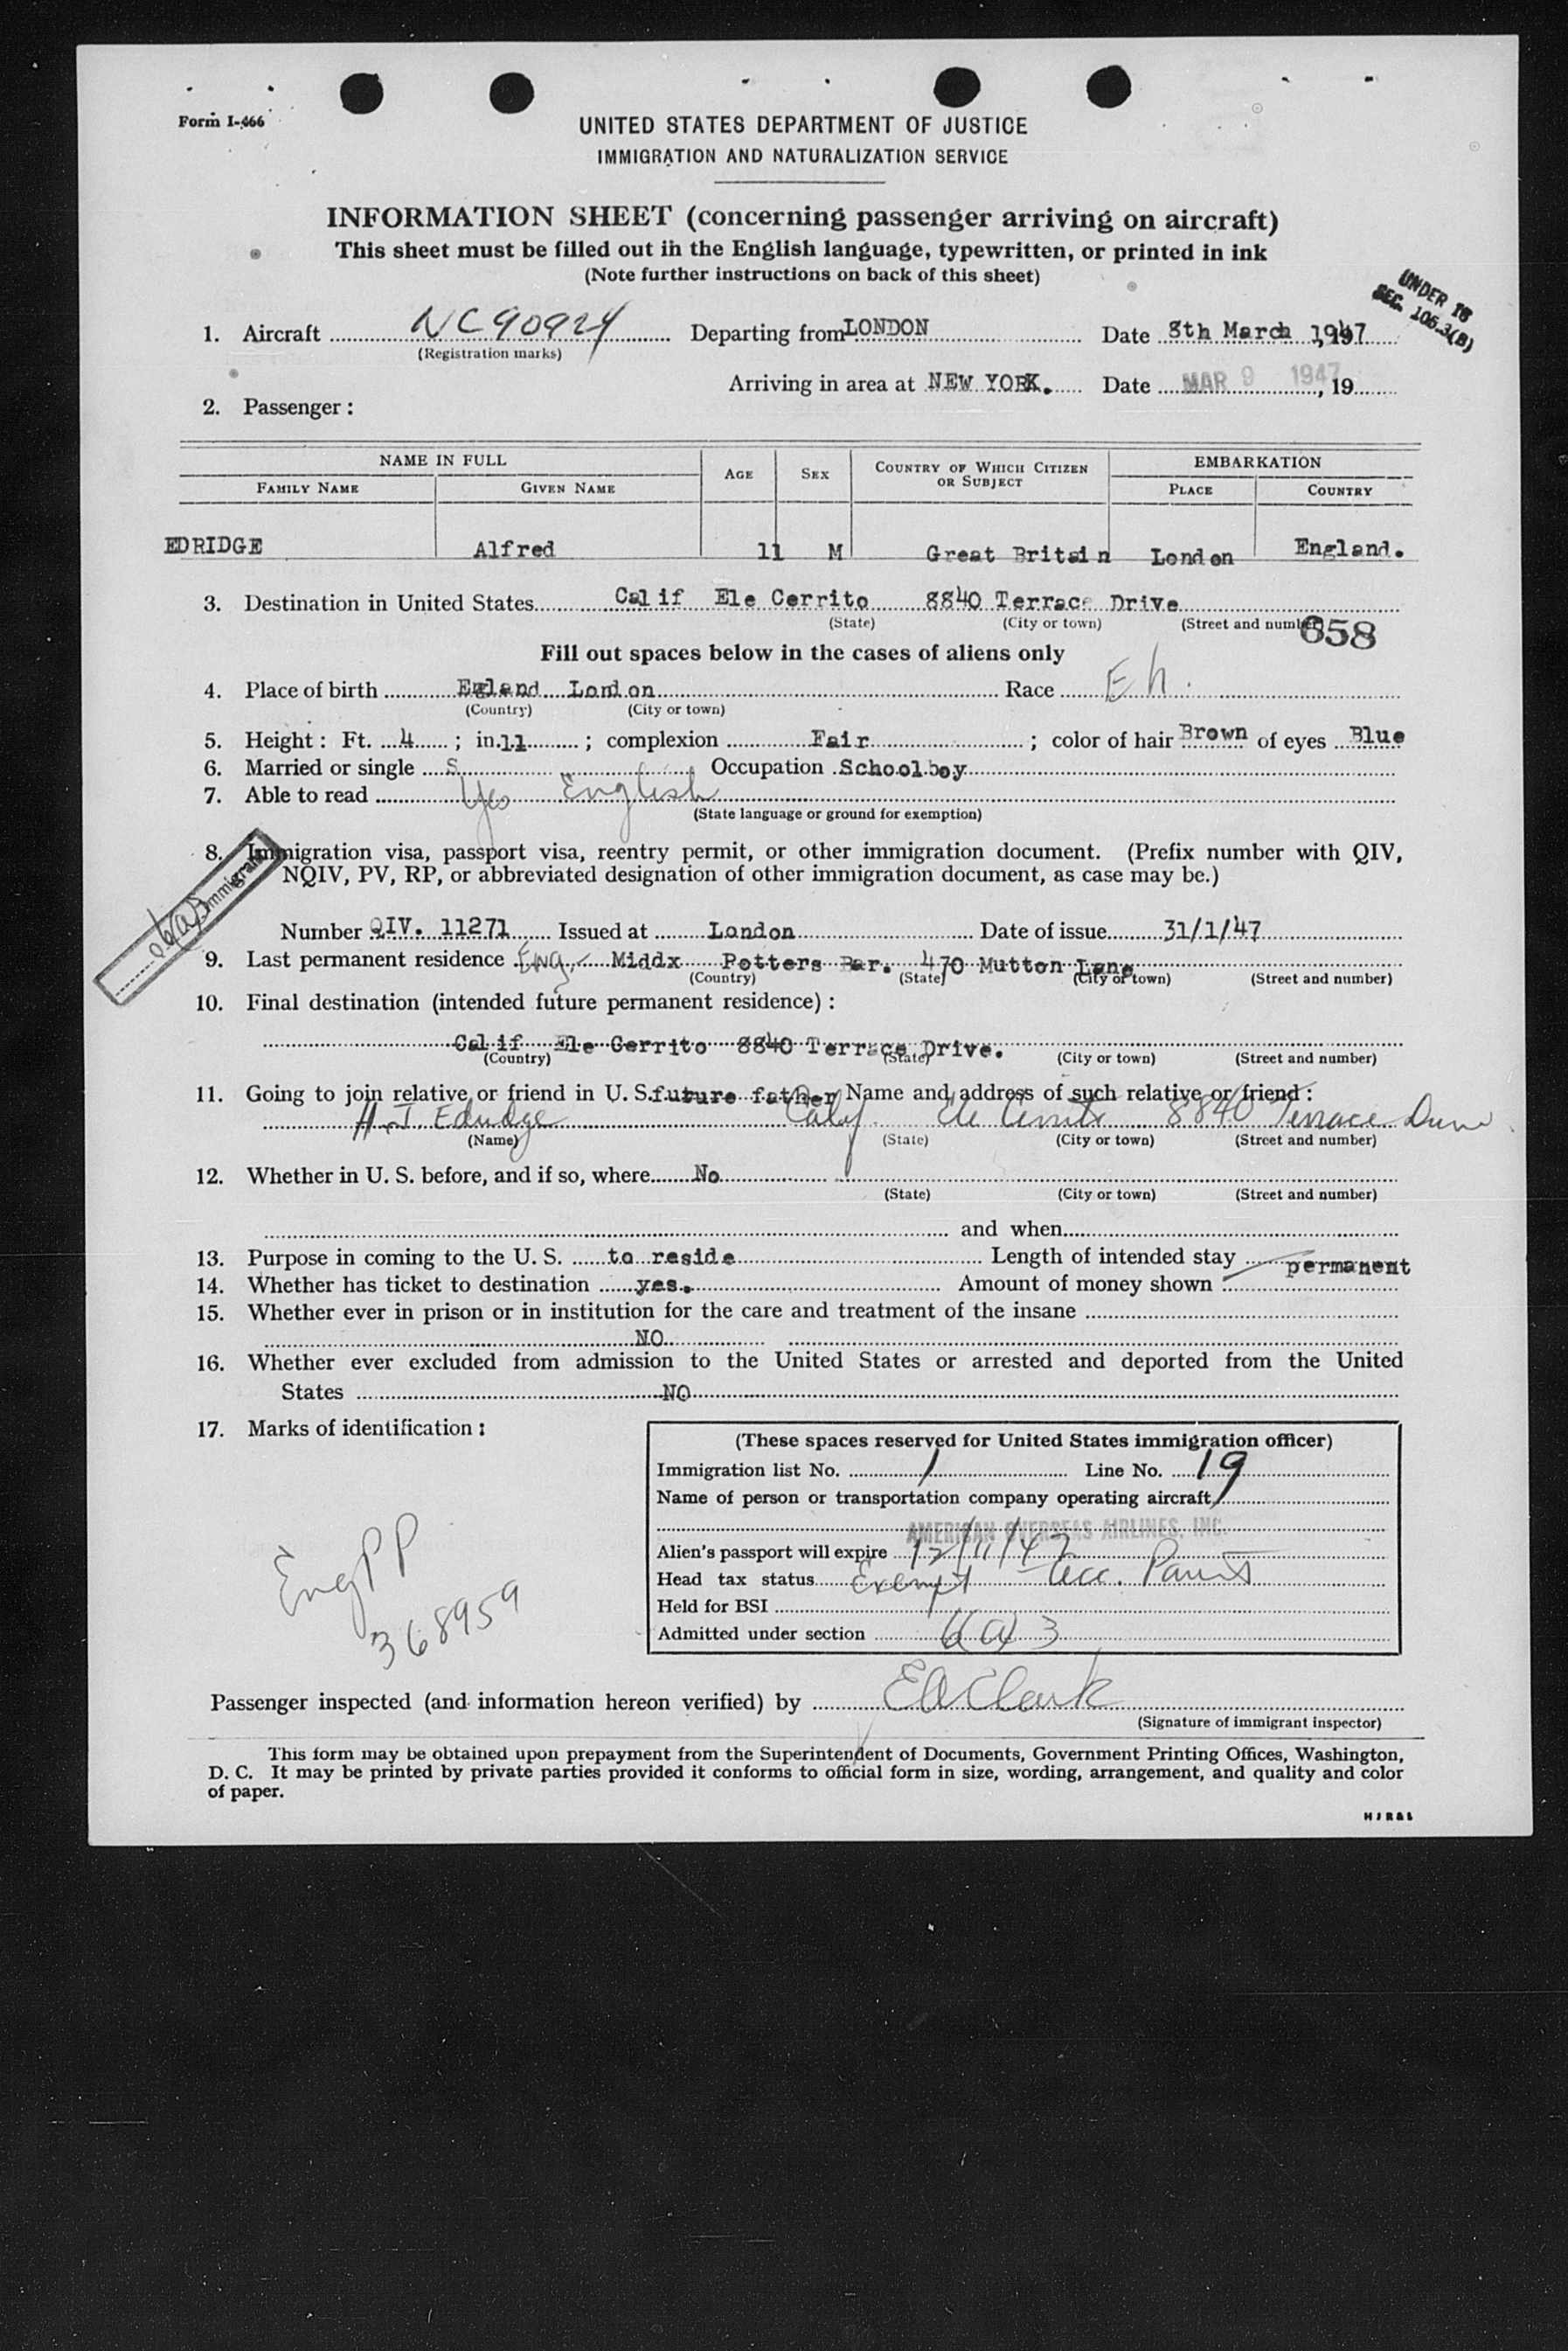 Form I-466
UNITED STATES DEPARTMENT OF JUSTICE
IMMIGRATION AND NATURALIZATION SERVICE
INFORMATION SHEET (concerning passenger arriving on aircraft)
This sheet must be filled out in the English language, typewritten, or printed in ink
(Note further instructions on back of this sheet)
UNDER 16
SEC. 105.3(B)
1. Aircraft NC90924 Departing from LONDON Date 8th March 1947
(Registration marks)
Arriving in area at NEW YORK. Date MAR 9 1947, 19
2. Passenger:
NAME IN FULL AGE SEX COUNTRY OF WHICH CITIZEN OR SUBJECT EMBARKATION
FAMILY NAME GIVEN NAME PLACE COUNTRY
EDRIDGE Alfred 11 M Great Britain London England.
3. Destination in United States Calif Ele Cerrito 8840 Terrace Drive
(State) (City or town) (Street and number)
658
Fill out spaces below in the cases of aliens only
4. Place of birth England London Race Eh.
(Country) (City or town)
5. Height: Ft. 4; in. 11; complexion Fair; color of hair Brown of eyes Blue
6. Married or single S Occupation Schoolboy
7. Able to read Yes English
(State language or ground for exemption)
8. Immigration visa, passport visa, reentry permit, or other immigration document. (Prefix number with QIV,
NQIV, PV, RP, or abbreviated designation of other immigration document, as case may be.)
6(a)3 Immigrant
Number QIV. 11271 Issued at London Date of issue 31/1/47
9. Last permanent residence Eng. Middx Potters Bar. 470 Mutton Lane
(Country) (State) (City or town) (Street and number)
10. Final destination (intended future permanent residence):
Calif Ele Cerrito 8840 Terrace Drive.
(Country) (State) (City or town) (Street and number)
11. Going to join relative or friend in U. S. future father Name and address of such relative or friend:
H. J. Edridge Calif. Ele Cerrito 8840 Terrace Drive
(Name) (State) (City or town) (Street and number)
12. Whether in U. S. before, and if so, where No
(State) (City or town) (Street and number)
and when
13. Purpose in coming to the U. S. to reside Length of intended stay permanent
14. Whether has ticket to destination yes. Amount of money shown
15. Whether ever in prison or in institution for the care and treatment of the insane
NO
16. Whether ever excluded from admission to the United States or arrested and deported from the United
States NO
17. Marks of identification:
Eng PP
368959
(These spaces reserved for United States immigration officer)
Immigration list No. 1 Line No. 19
Name of person or transportation company operating aircraft
AMERICAN OVERSEAS AIRLINES, INC.
Alien's passport will expire 12/11/47
Head tax status Exempt - acc. Parents
Held for BSI
Admitted under section 6(a)3
Passenger inspected (and information hereon verified) by EAClark
(Signature of immigrant inspector)
This form may be obtained upon prepayment from the Superintendent of Documents, Government Printing Offices, Washington,
D. C. It may be printed by private parties provided it conforms to official form in size, wording, arrangement, and quality and color
of paper.